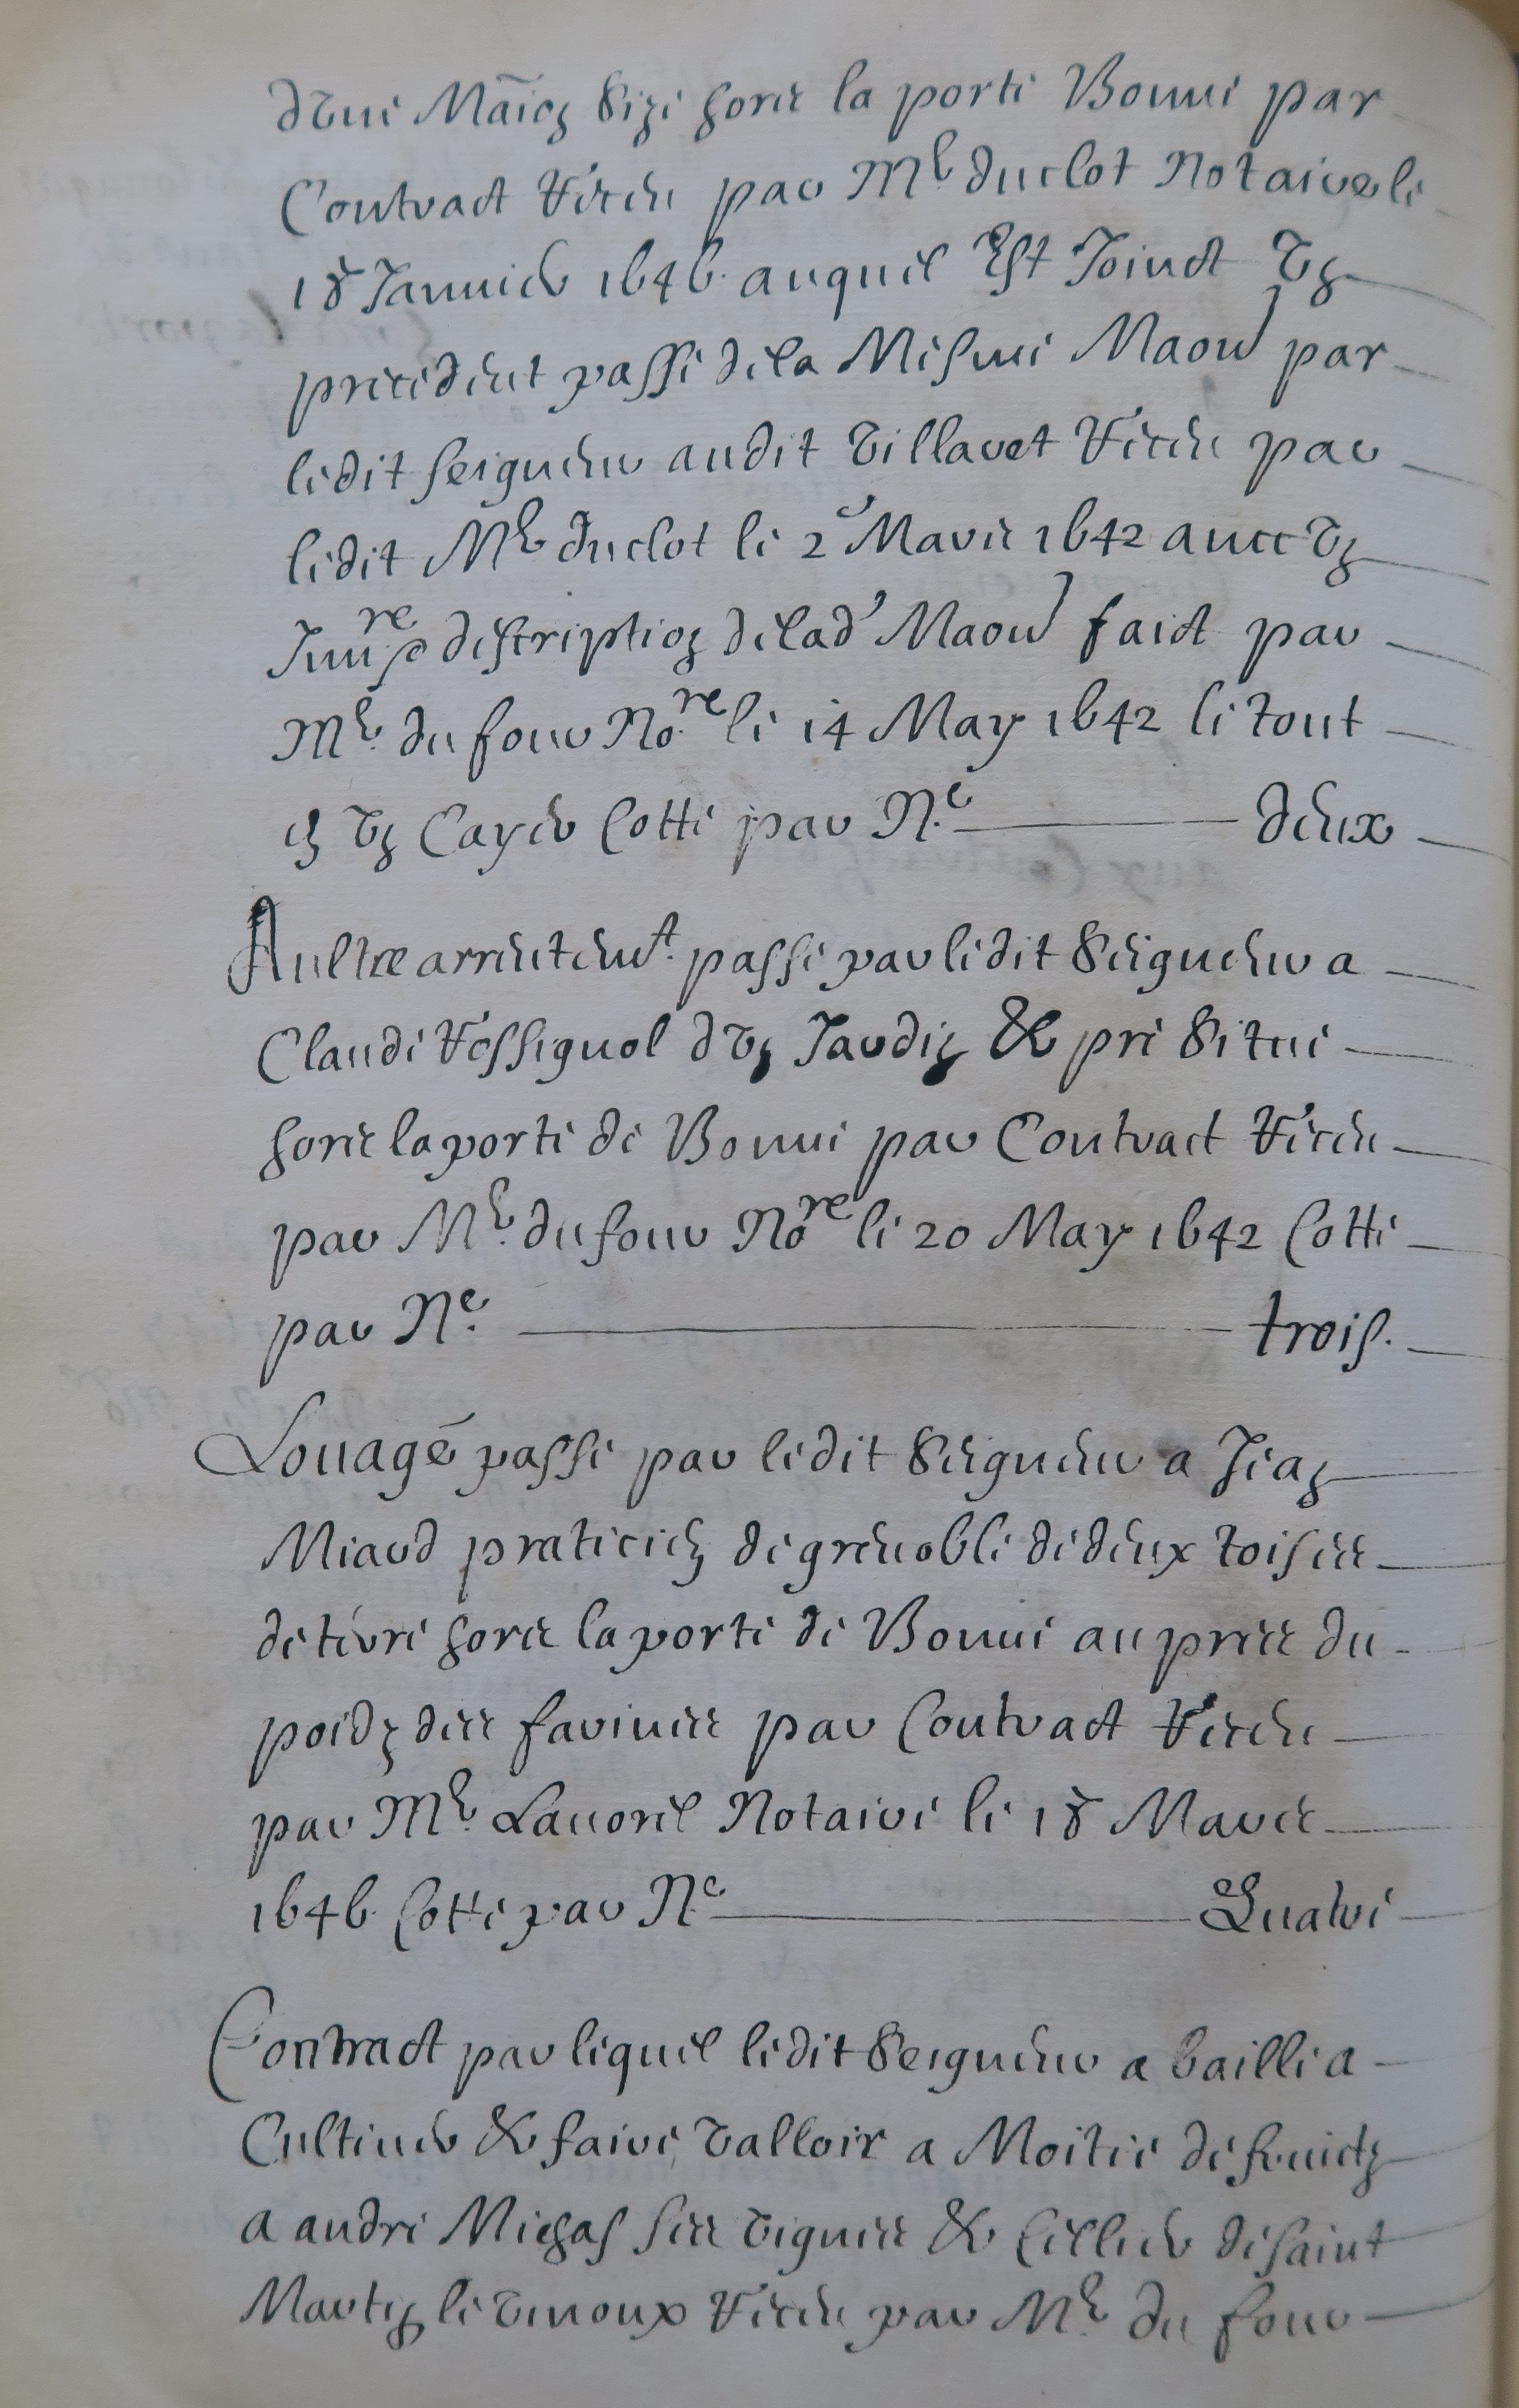 d'une Maiõn size hors la porte Bonne par
Contract Receu par Me duclot Notaire le
18 Januier 1646 auquel Est Joinct Vn
precedent passé de la Mesme Maon par
ledit seigneur audit Villaret Receu par
ledit Me duclot le 2e Mars 1642 auec Vn
Inure description de lad' Maon faict par
Me du four Nore le 14 May 1642 le tout
en Vn Cayer Cotté par Ne deux
Aultre arrentemt passé par ledit Seigneur a
Claude Rossignol d'Vn Jardin & pré Situé
hors la porte de Bonne par Contract Receu
par Me du four Nore le 20 May 1642 Cotté
par Ne trois.
Louage passé par ledit Seigneur a Jean
Miard praticien de grenoble de deux toises
de terre hors la porte de Bonne au pres du
poidz des farines par Contract Receu
par Me Lauorel Notaire le 18 Mars
1646 Cotté par Ne Quatre
Contract par lequel ledit Seigneur a baillé a
Cultiuer & faire Valloir a Moitié de fruictz
a andre Michas ses vignes & Cellier de saint
Martin le Vinoux Receu par Me du four